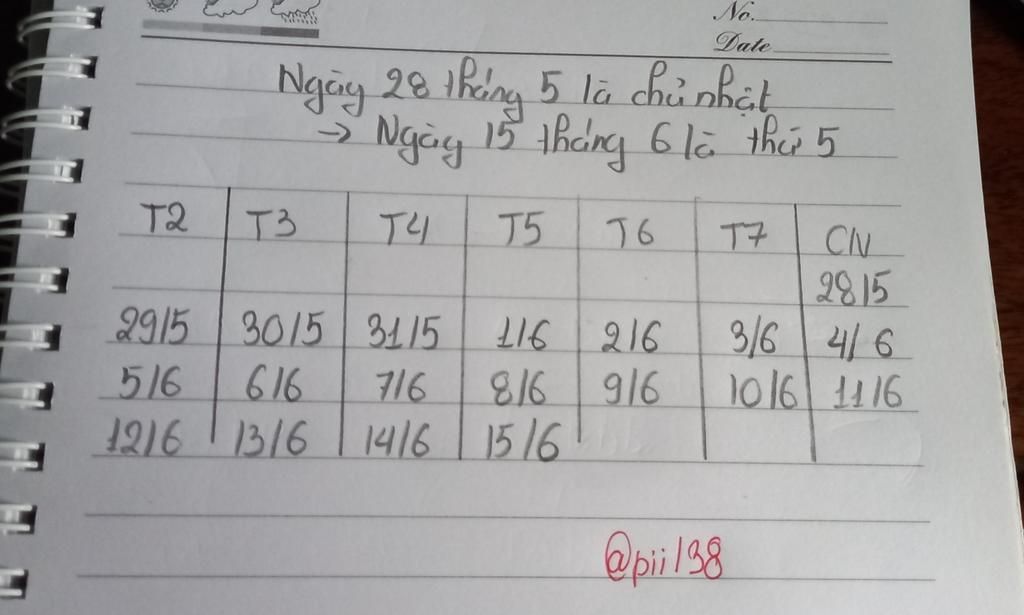 No.
Date
Ngày 28 tháng 5 là chủ nhật
→ Ngày 15 tháng 6 là thứ 5
T2 T3 T4 T5 T6 T7 CN
28/5
29/5 30/5 31/5 1/6 2/6 3/6 4/6
5/6 6/6 7/6 8/6 9/6 10/6 11/6
12/6 13/6 14/6 15/6
@pii138